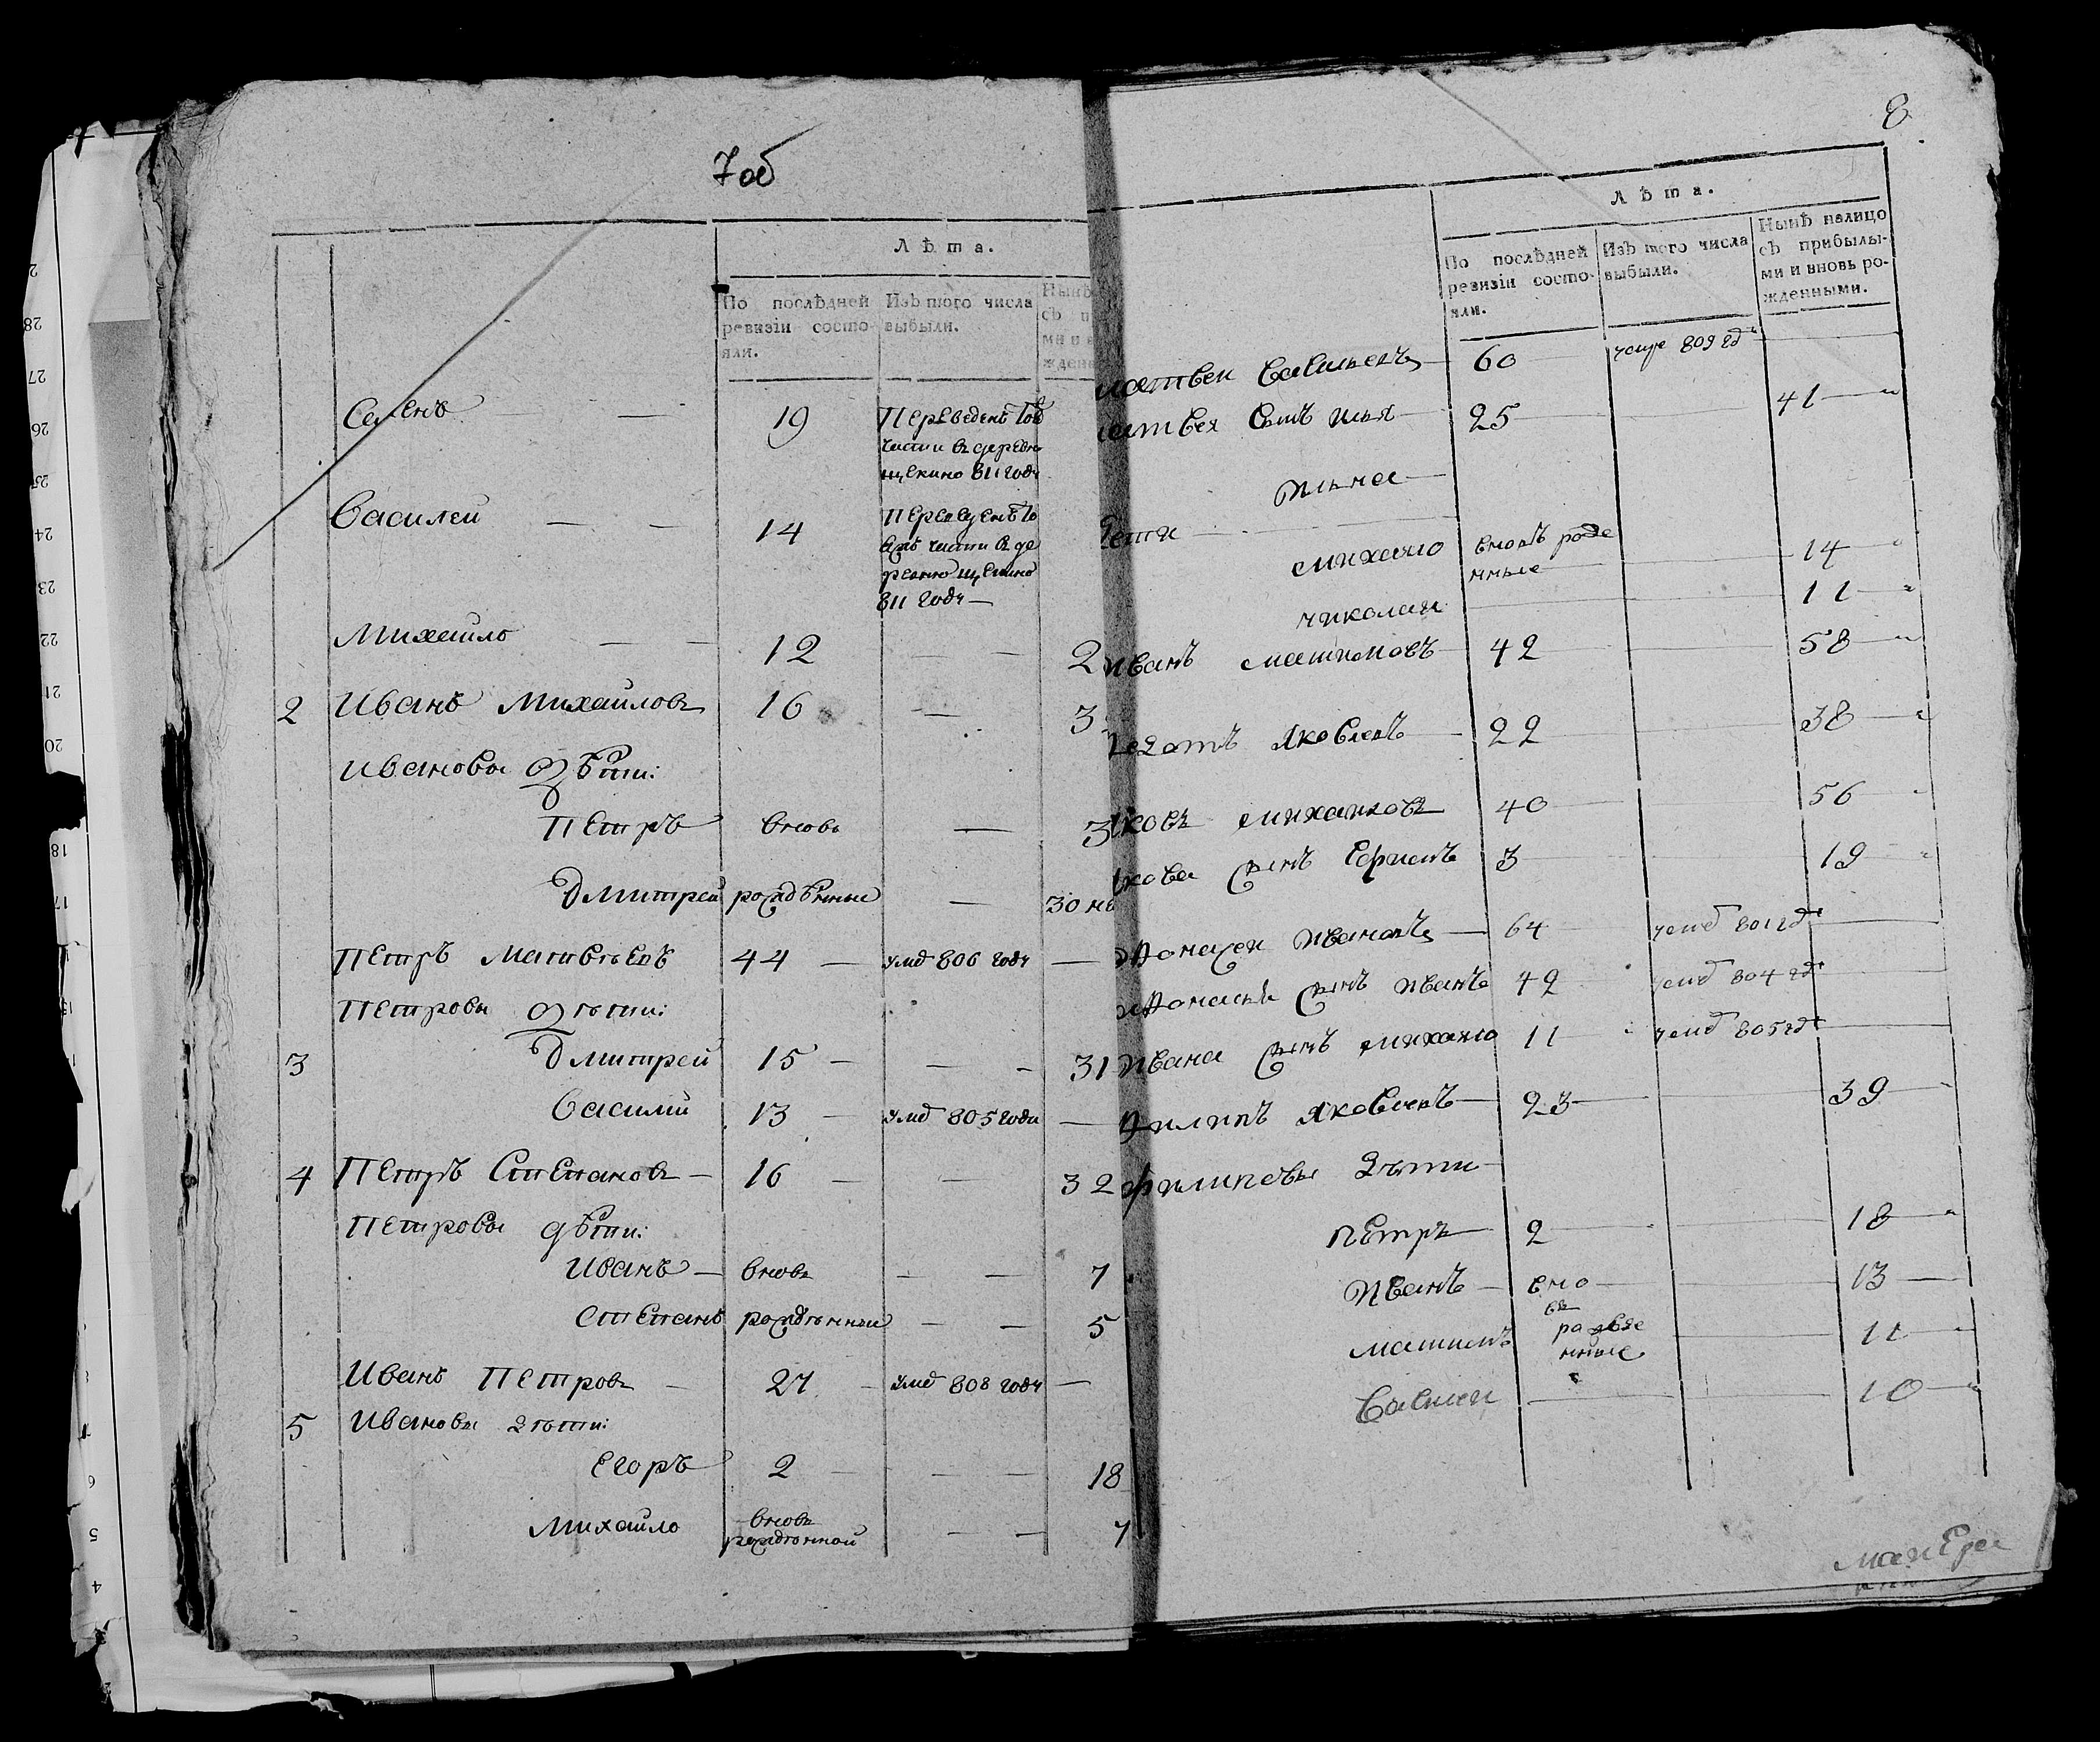 7об
Лѣта.
По послѣдней ревизіи состояли.
Изъ того числа выбыли.
Нынѣ
съ п
ми и в
ждене
Семенъ — 19
Переведенъ
части в деревню
щекино 811 году
Василей — — 14
части в де
ревню щекино
811 году —
Михайло — — 12 — — 2
2 Иванъ Михайловъ 16 — 3
Ивановы дѣти:
Петръ вновь — 3
Дмитрей рождѣнные — 30 не
Петръ Матвѣевъ 44 — умѣ 806 году —
Петровы дѣти:
3 Дмитрей 15 — — - 31
Василий 13 - умѣ 805 года —
4 Петръ Степановъ — 16 — — 32
Петровы дѣти:
Иванъ — вновь — — 7
Степанъ рождѣнныи — — 5
Иванъ Петровъ — 27 - умѣ 808 году —
5 Ивановы дѣти:
Егоръ 2 — — — 18
Михайло вновь
рождѣнной — — 7
8
Лѣта.
По послѣдней ревизіи состояли.
Изъ того числа выбыли.
Нынѣ налицо съ прибылыми и вновь рожденными.
матвеи Савельевъ — 60 809 гд
атвея сынъ илья — 25 41
Ильча —
ети —
михаило вновь рожде
нные 14
николаи 11
Иванъ 42 58
Яковлевъ — 22 38
ковъ михаиловъ 40 56
кова сынъ Ефимъ 3 19
Ивановъ — 64 801 гд
сынъ Иванъ 42 804 гд
Ивана сынъ михаило 11 805 гд
Филипъ Яковлевъ — 23 39
филиповы дѣти —
Петръ — 2 18
Иванъ — вно 13
въ
рожде
нные 11
Василеи 10